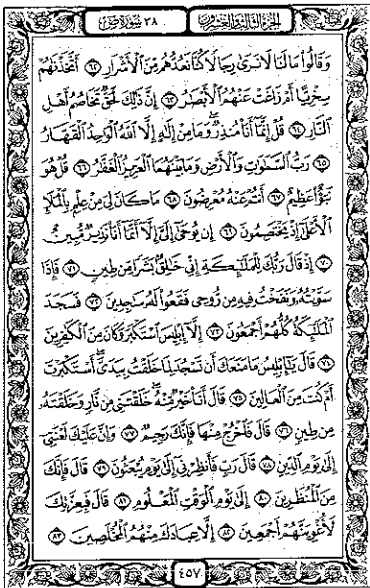 الجزء الثالث والعشرون
٣٨ سورة ص
وَقَالُوا۟ مَا لَنَا لَا نَرَىٰ رِجَالًا كُنَّا نَعُدُّهُم مِّنَ ٱلْأَشْرَارِ ٦٢ أَتَّخَذْنَـٰهُمْ
سِخْرِيًّا أَمْ زَاغَتْ عَنْهُمُ ٱلْأَبْصَـٰرُ ٦٣ إِنَّ ذَٰلِكَ لَحَقٌّ تَخَاصُمُ أَهْلِ
ٱلنَّارِ ٦٤ قُلْ إِنَّمَآ أَنَا۠ مُنذِرٌ وَمَا مِنْ إِلَـٰهٍ إِلَّا ٱللَّهُ ٱلْوَٰحِدُ ٱلْقَهَّارُ
٦٥ رَبُّ ٱلسَّمَـٰوَٰتِ وَٱلْأَرْضِ وَمَا بَيْنَهُمَا ٱلْعَزِيزُ ٱلْغَفَّـٰرُ ٦٦ قُلْ هُوَ
نَبَؤٌا۟ عَظِيمٌ ٦٧ أَنتُمْ عَنْهُ مُعْرِضُونَ ٦٨ مَا كَانَ لِىَ مِنْ عِلْمٍۭ بِٱلْمَلَإِ
ٱلْأَعْلَىٰٓ إِذْ يَخْتَصِمُونَ ٦٩ إِن يُوحَىٰٓ إِلَىَّ إِلَّآ أَنَّمَآ أَنَا۠ نَذِيرٌ مُّبِينٌ
٧٠ إِذْ قَالَ رَبُّكَ لِلْمَلَـٰٓئِكَةِ إِنِّى خَـٰلِقٌۢ بَشَرًا مِّن طِينٍ ٧١ فَإِذَا
سَوَّيْتُهُۥ وَنَفَخْتُ فِيهِ مِن رُّوحِى فَقَعُوا۟ لَهُۥ سَـٰجِدِينَ ٧٢ فَسَجَدَ
ٱلْمَلَـٰٓئِكَةُ كُلُّهُمْ أَجْمَعُونَ ٧٣ إِلَّآ إِبْلِيسَ ٱسْتَكْبَرَ وَكَانَ مِنَ ٱلْكَـٰفِرِينَ
٧٤ قَالَ يَـٰٓإِبْلِيسُ مَا مَنَعَكَ أَن تَسْجُدَ لِمَا خَلَقْتُ بِيَدَىَّ أَسْتَكْبَرْتَ
أَمْ كُنتَ مِنَ ٱلْعَالِينَ ٧٥ قَالَ أَنَا۠ خَيْرٌ مِّنْهُ خَلَقْتَنِى مِن نَّارٍ وَخَلَقْتَهُۥ
مِن طِينٍ ٧٦ قَالَ فَٱخْرُجْ مِنْهَا فَإِنَّكَ رَجِيمٌ ٧٧ وَإِنَّ عَلَيْكَ لَعْنَتِىٓ
إِلَىٰ يَوْمِ ٱلدِّينِ ٧٨ قَالَ رَبِّ فَأَنظِرْنِىٓ إِلَىٰ يَوْمِ يُبْعَثُونَ ٧٩ قَالَ فَإِنَّكَ
مِنَ ٱلْمُنظَرِينَ ٨٠ إِلَىٰ يَوْمِ ٱلْوَقْتِ ٱلْمَعْلُومِ ٨١ قَالَ فَبِعِزَّتِكَ
لَأُغْوِيَنَّهُمْ أَجْمَعِينَ ٨٢ إِلَّا عِبَادَكَ مِنْهُمُ ٱلْمُخْلَصِينَ ٨٣
٤٥٧